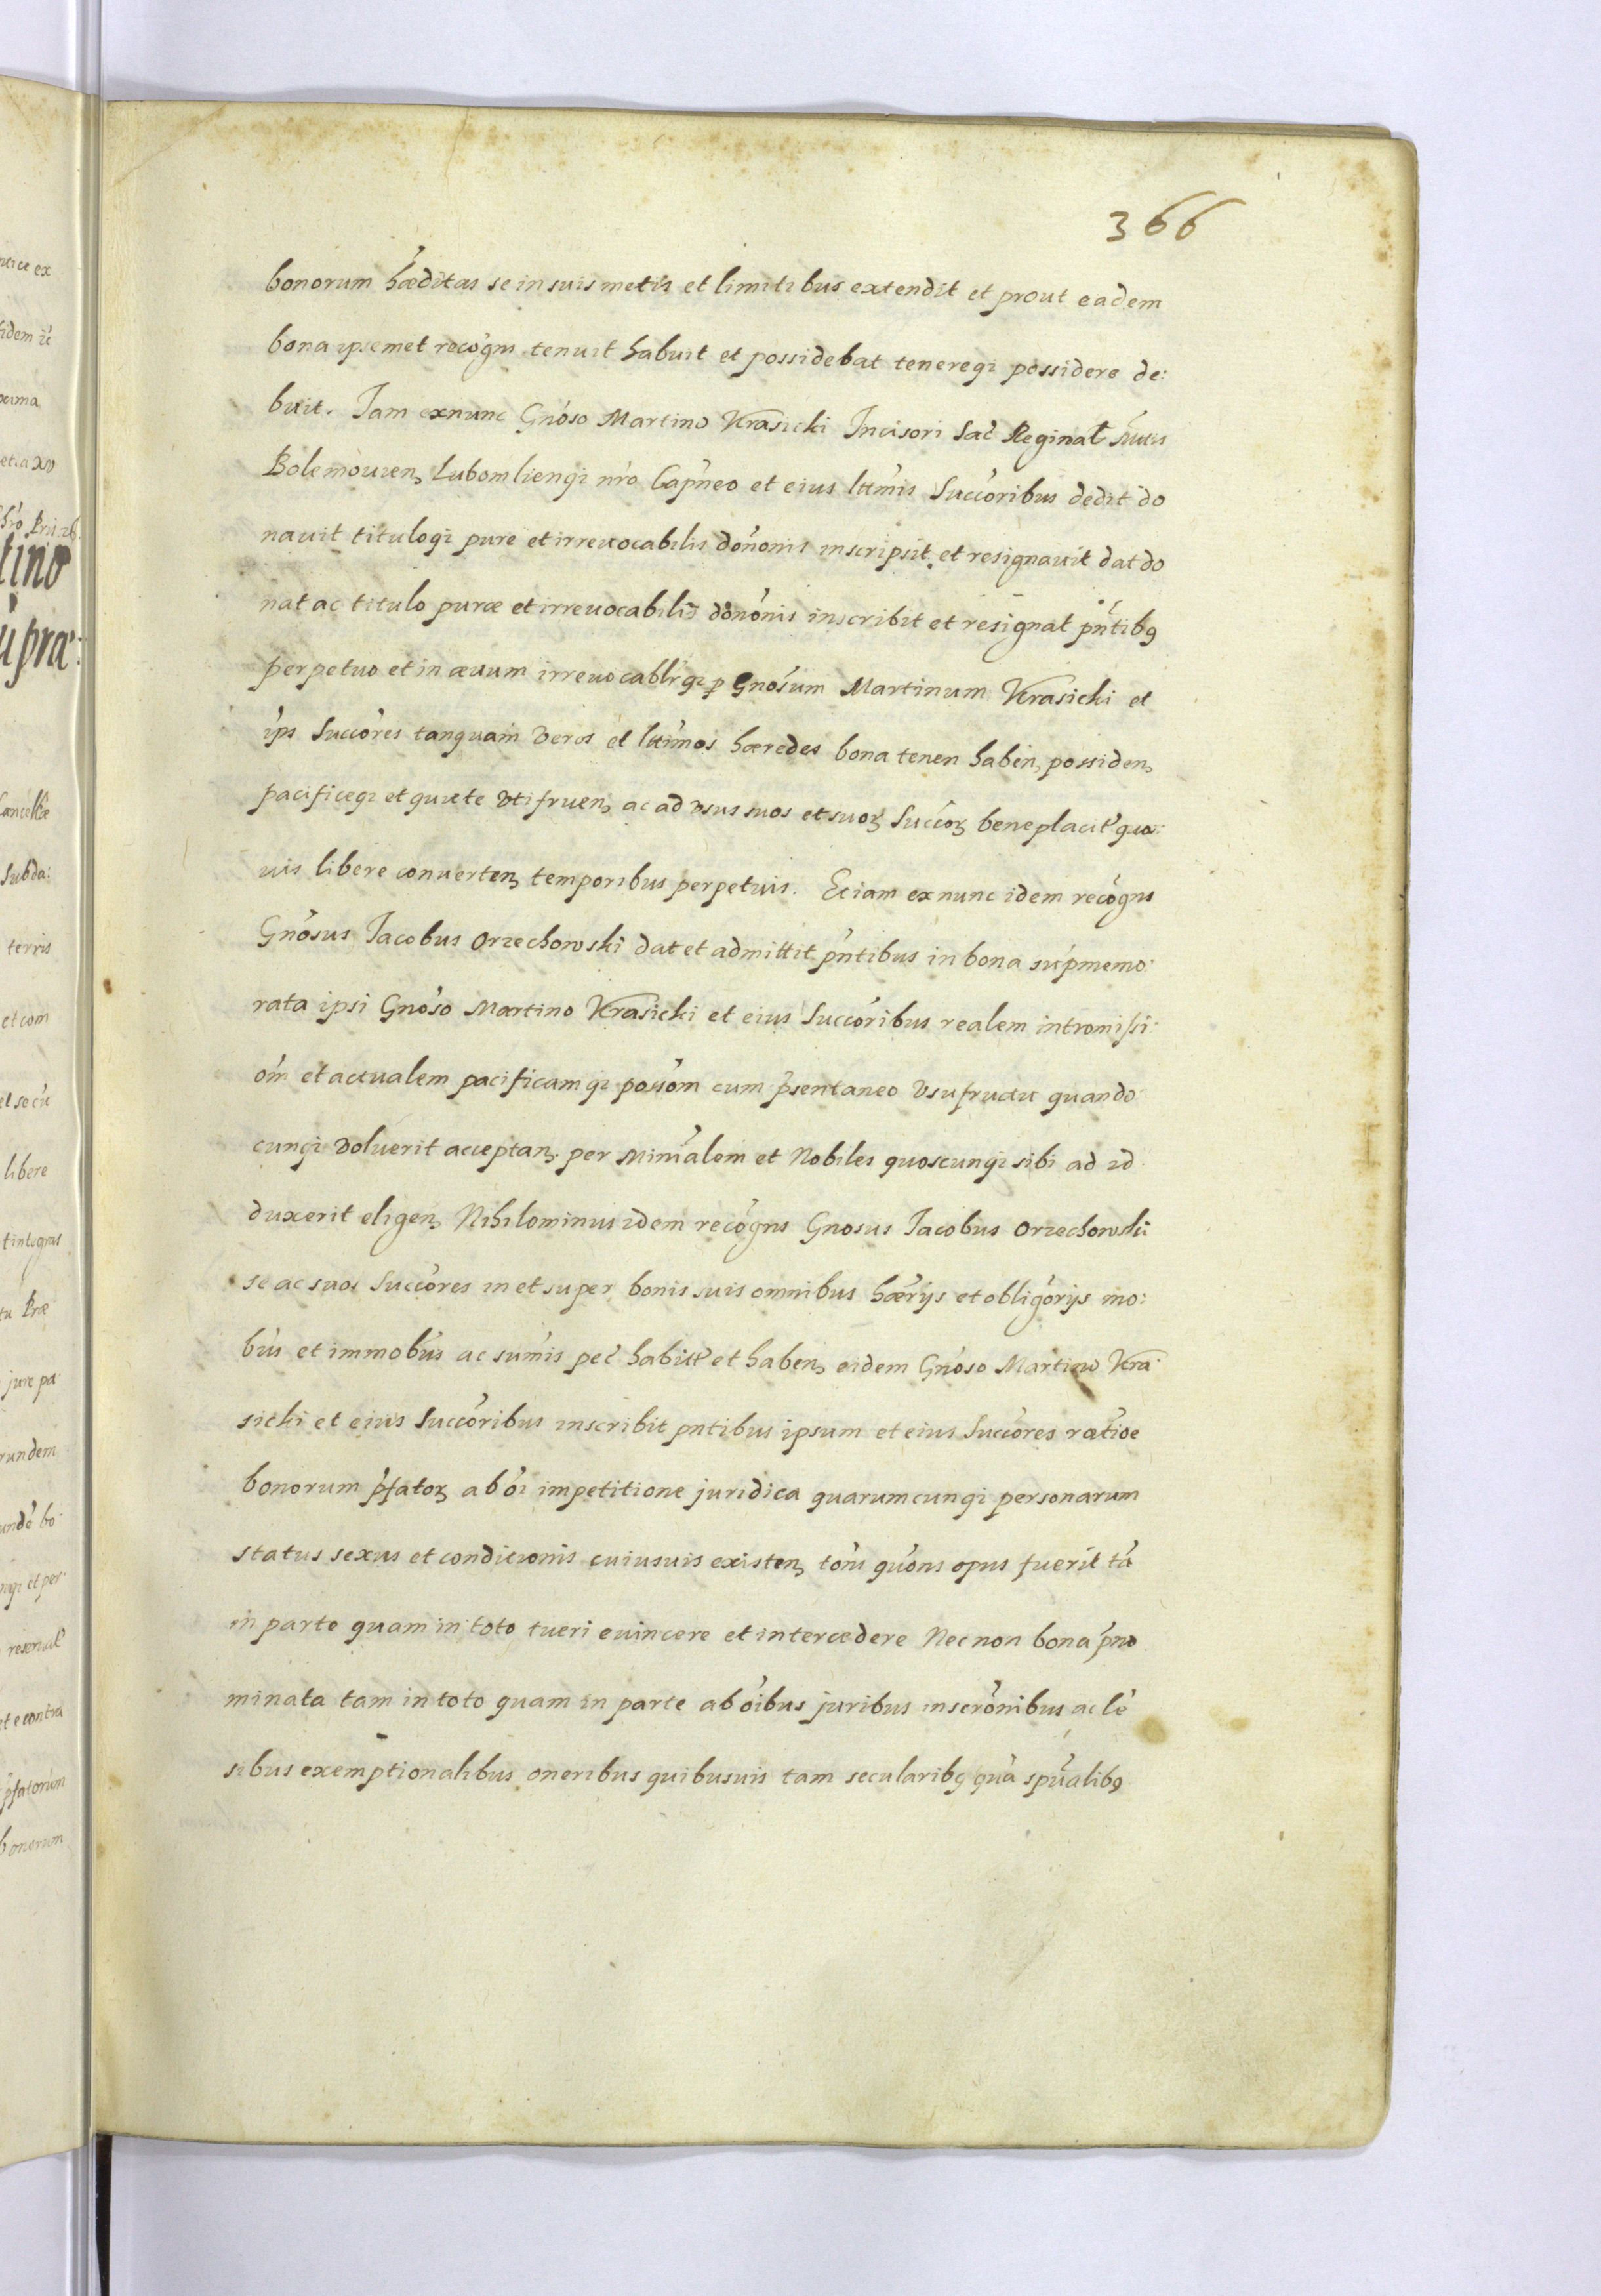 366
bonorum hæditas se in suis metis et limitibus extendit et prout eadem
bona ipsemet recogns tenuit habuit et possidebat tenereqʒ possidere de:
buit. Iam exnunc Gnoso Martino Krasicki Incisori Sac Reginal
Bolemouien, Lubomlienqʒ nro Capneo et eius lttimis Succoribus dedit do
nauit tituloqʒ pure et irreuocabilis dononis inscripsit et resignauit dat do
nat ac titulo puræ et irreuocabilis dononis inscribit et resignat pntibꝯ
perpetuo et in æuum irreuocablrqʒ ꝑ Gnosum Martinum Krasicki et
ips Succores tanquam veros et lttimos hæredes bona tenen haben, possiden,
pacificeqʒ et quiete vti fruen, ac ad vsus suos et suoꝝ Succoꝝ beneplacit quæ:
uis libere conuerten, temporibus perpetuis. Eciam exnunc idem recogns
Gnosus Iacobus Orzechowski dat et admittit pntibus in bona supmemo:
rata ipsi Gnoso Martino Krasicki et eius Succoribus realem intromissi:
om et actualem pacificamqʒ possom cum psentaneo vsufructu quando
cunqʒ voluerit acceptan, per Minialem et Nobiles quoscunqʒ sibi ad id
duxerit eligen, Nihilominus idem recogns Gnosus Iacobus Orzechowski
se ac suos Succores in et super bonis suis omnibus hærijs et obligorijs mo:
bus et immobus ac sumis pec habitt et haben, eidem Gnoso Martino Kra:
sicki et eius Succoribus inscribit pntibus ipsum et eius Succores ratioe
bonorum pfatoꝝ ab oi impetitione juridica quarumcunqʒ personarum
status sexus et conditionis cuiusuis existen, toties quons opus fuerit ta
in parte quam in toto tueri euincere et intercedere Nec non bona pno
minata tam in toto quam in parte ab oibus juribus inscronibus ac le
sibus exemptionalibus oneribus quibusuis tam secularibꝯ qua spualibꝯ